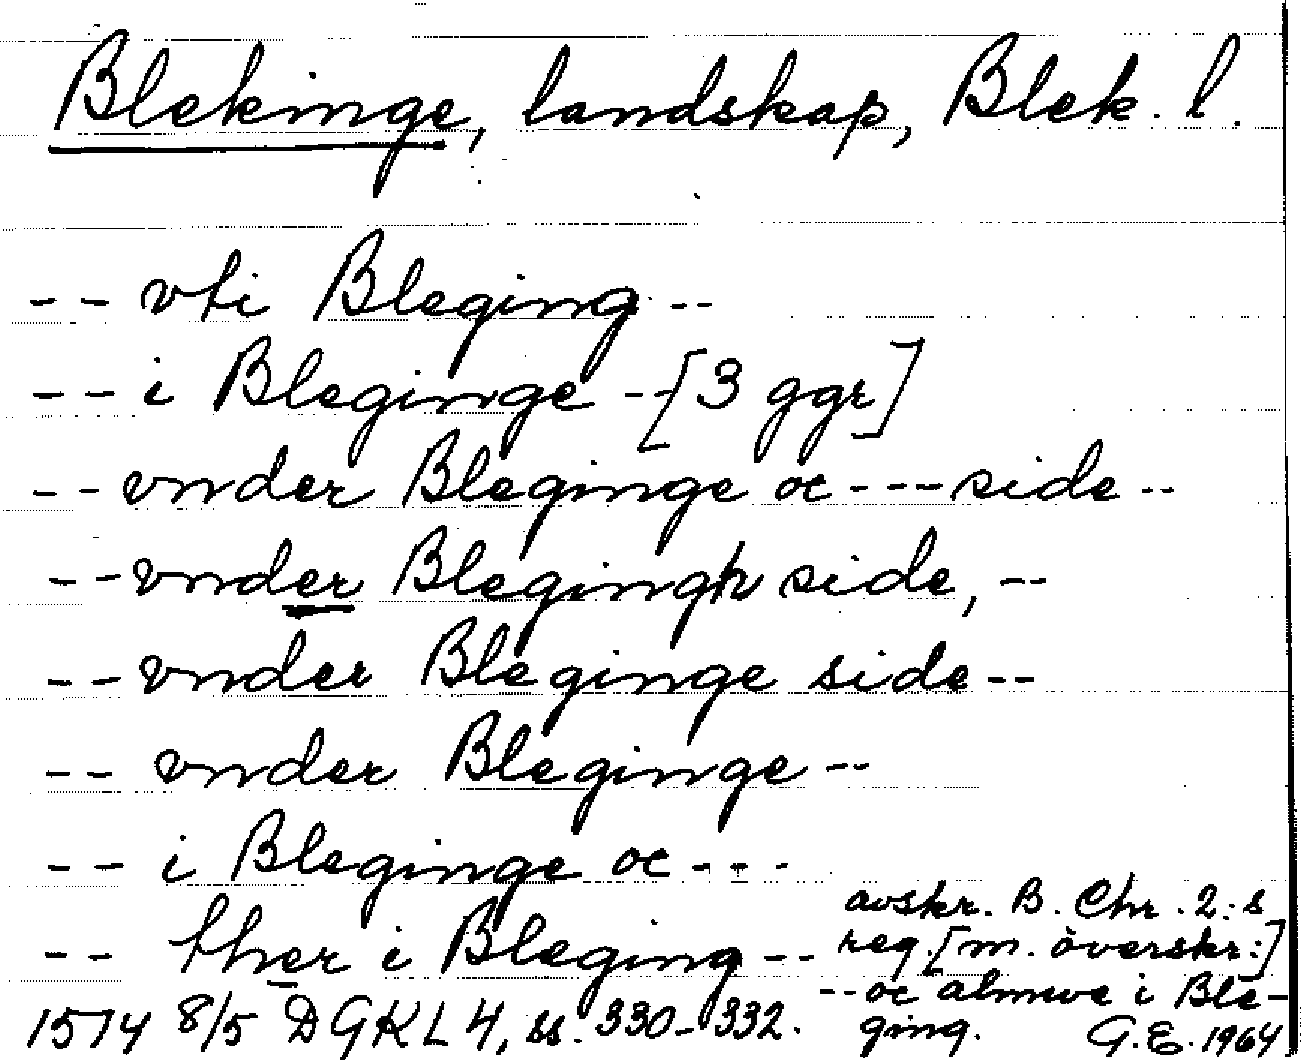 Blekinge, landskap, Blek. l.
-- vti Bleging --
-- i Bleginge --[3 ggr]
-- vnder Bleginge oc --- side --
-- vnder Blegingh side, --
-- vnder Bleginge side --
-- vnder Bleginge --
-- i Bleginge oc ---
-- ther i Bleging --
1514 8/5 DGKL 4, ss. 330-332.
avskr. B. Chr. 2:s
reg. [m. överskr:]
-- oc almwe i Ble-
ging. G.E. 1964